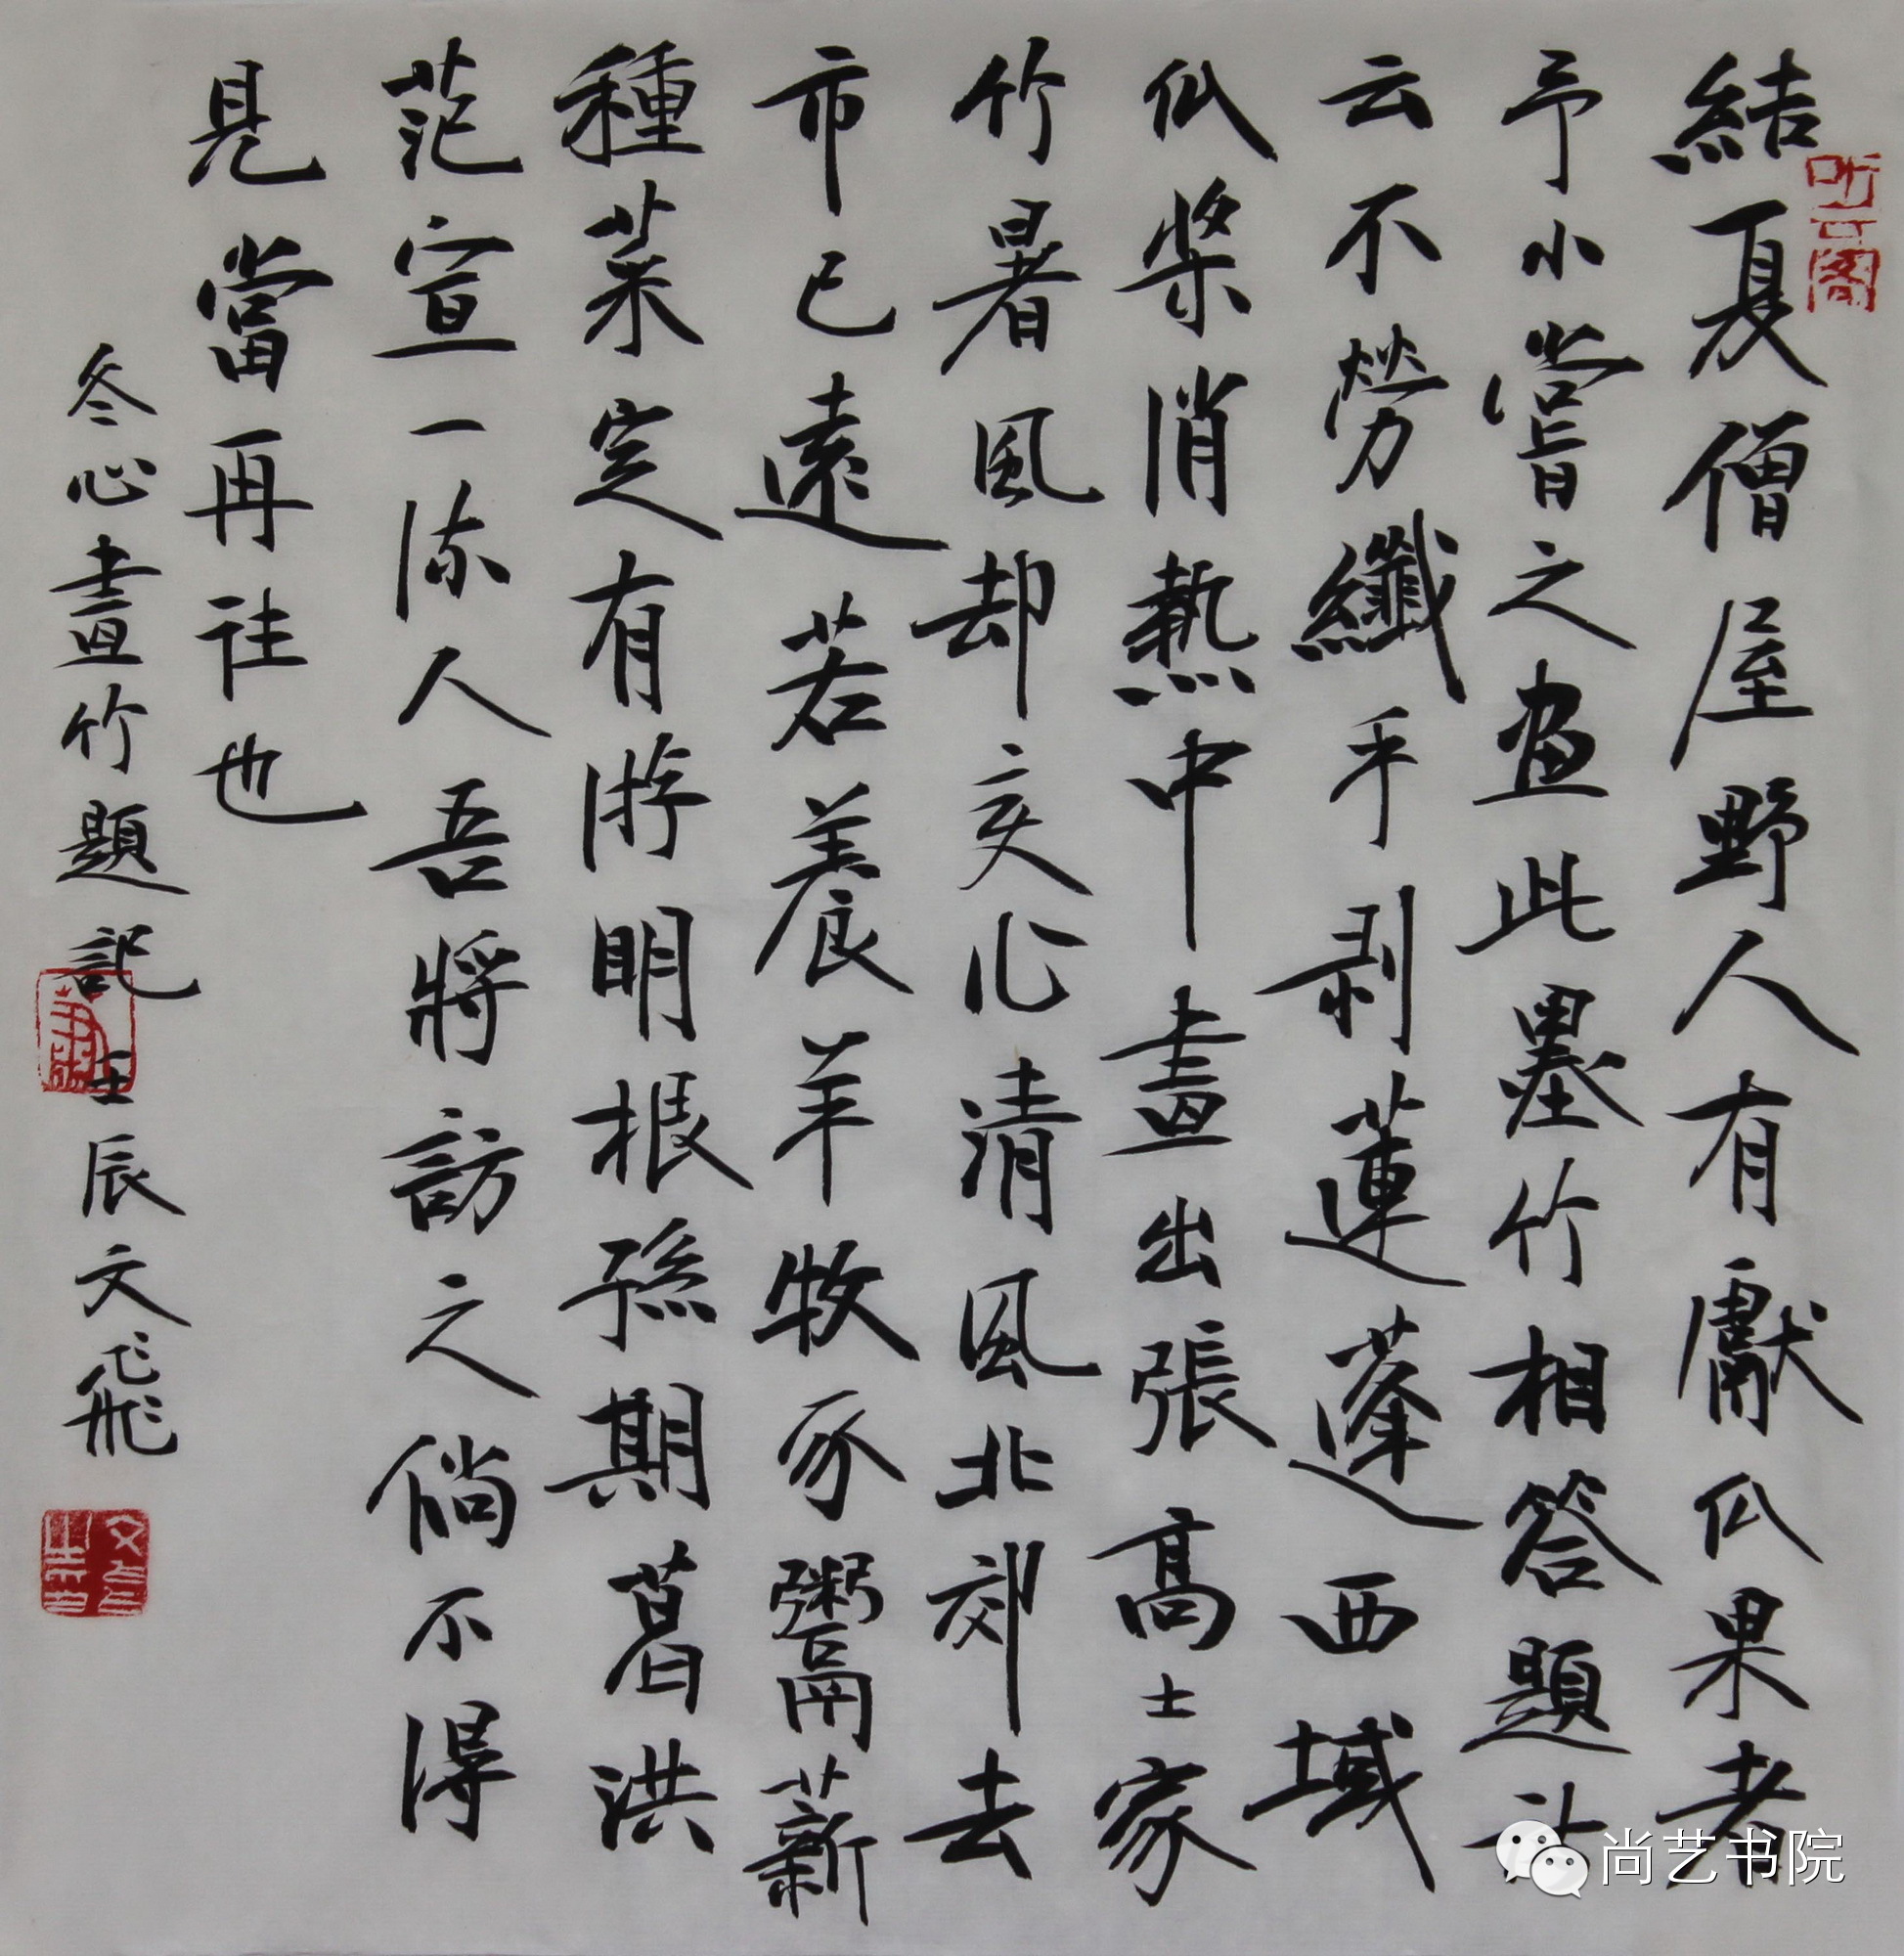 結夏僧屋野人有獻瓜果者
予小嘗之畫此墨竹相答題詩
云不勞纖手剥蓮蓬西域
瓜槳消熱中畫出張高士家
竹暑風却變作清風北郊去
市已遠若養羊牧豕鬻薪
種菜定有游明根孫期葛洪
范宣一流人吾將訪之倘不得
見當再往也
冬心畫竹題記 壬辰文飛
听雨閣
尚艺书院